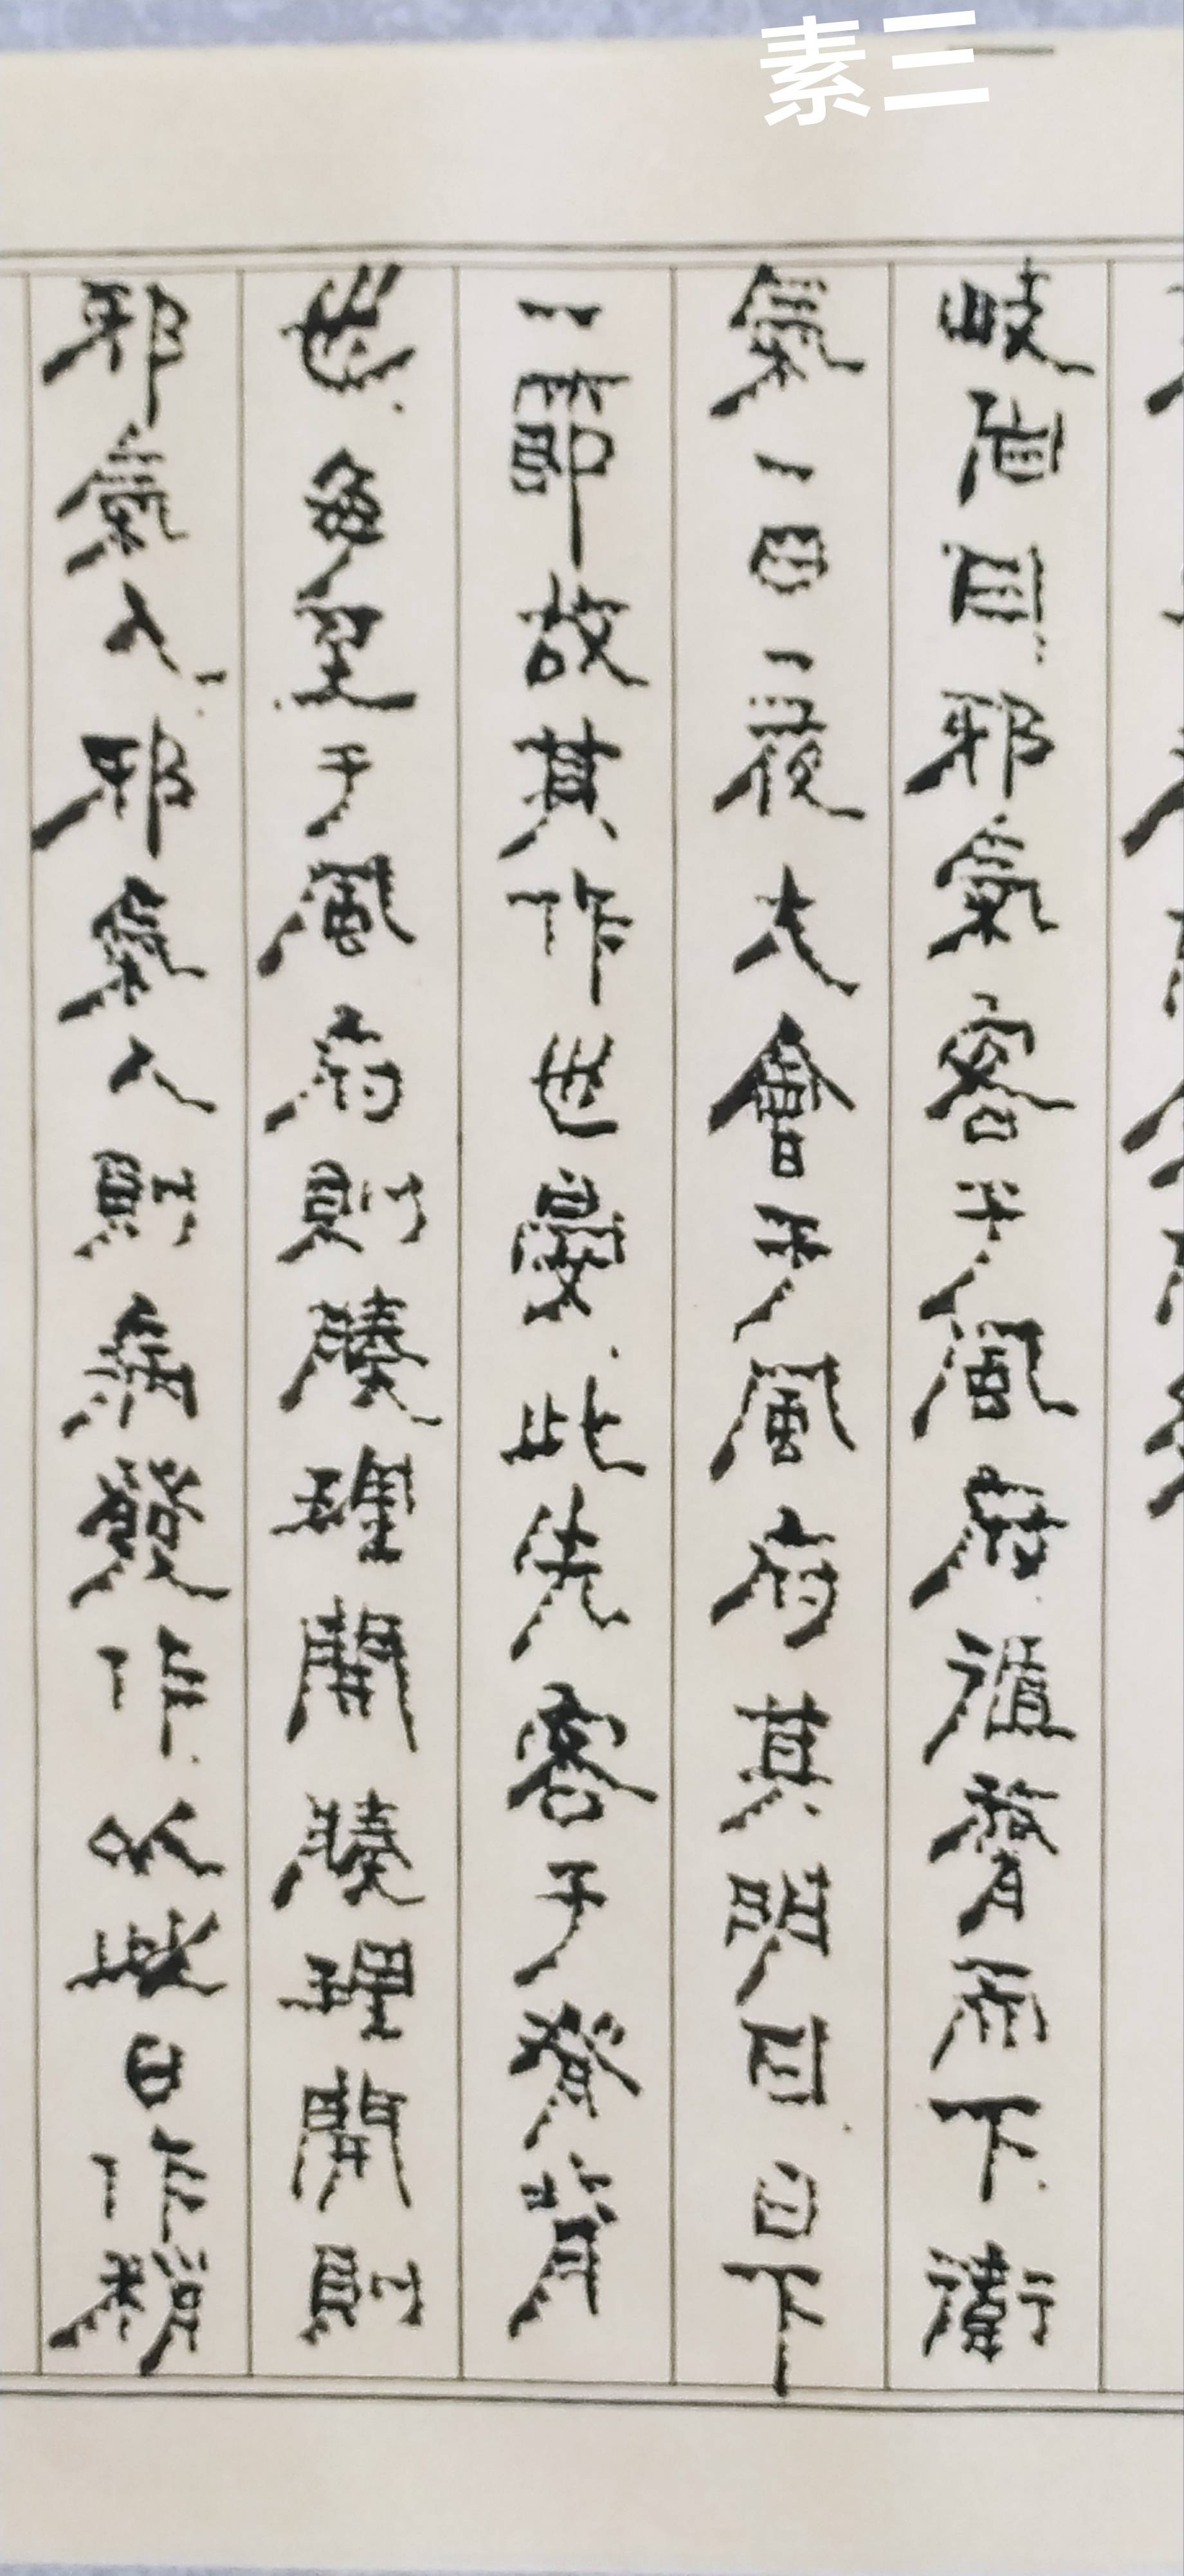 素三
岐伯曰邪氣客于風府循膂而下衛
氣一日一夜大會于風府其明日日下
一節故其作也晏此先客于脊背
也每至于風府則腠理開腠理開則
邪氣入邪氣入則病發作以此日作稍